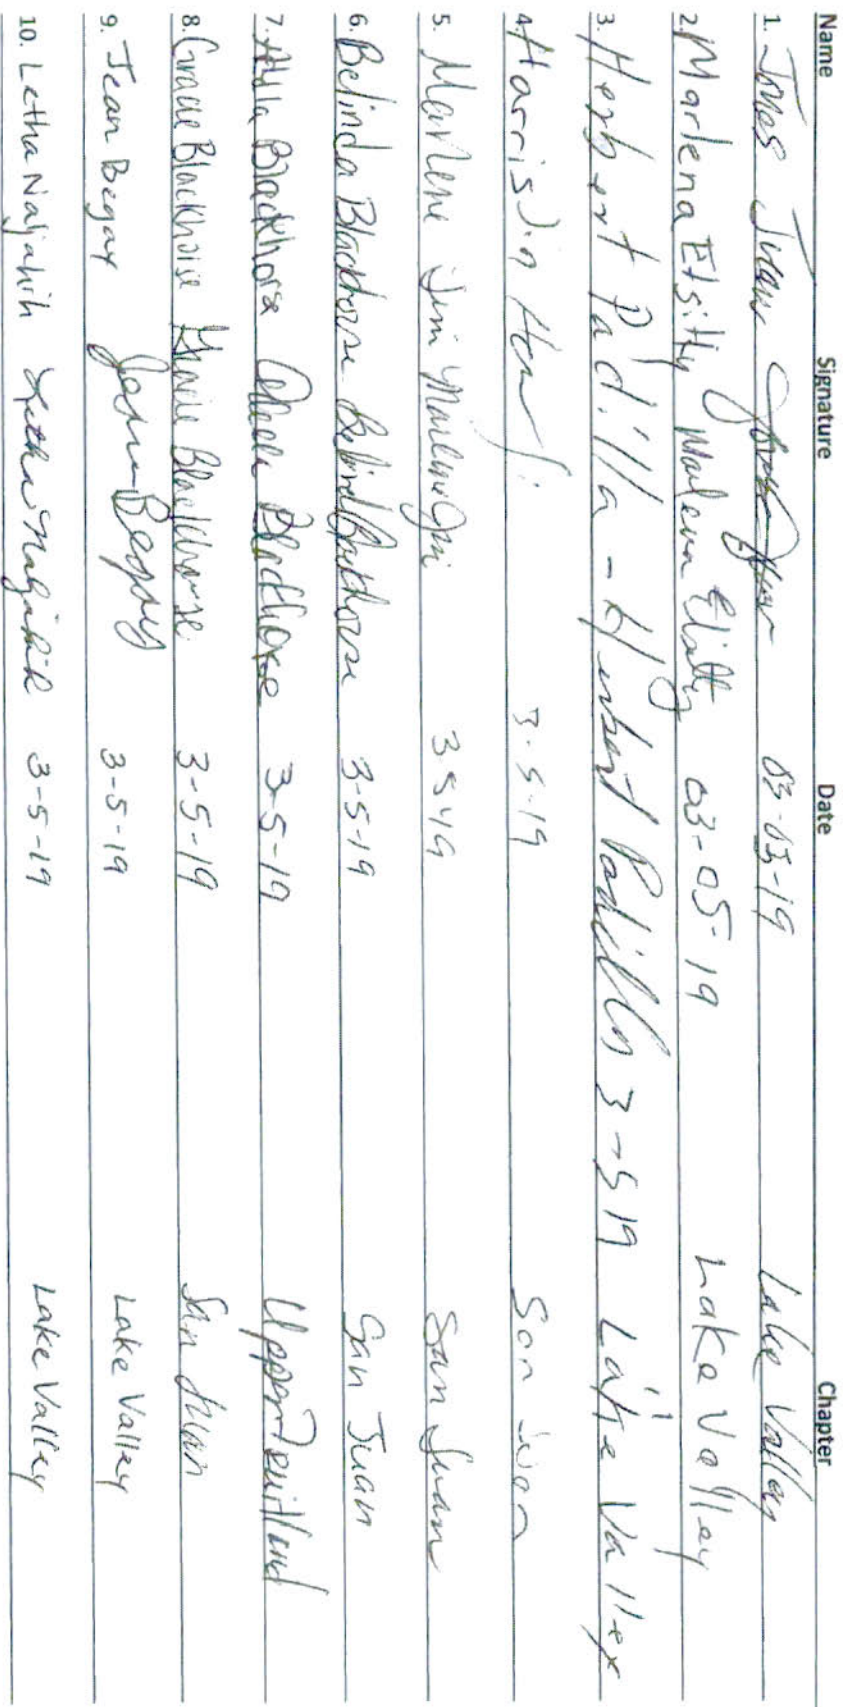 Name Signature Date Chapter
1. Jones 03-05-19 Lake Valley
2. Marlena Etsitty Marlena Etsitty 03-05-19 Lake Valley
3. Herbert Padilla - Herbert Padilla 3-5-19 Lake Valley
4. Harris Jim 3-5-19 San Juan
5. Marlene Jim Marlene Jim 3-5-19 San Juan
6. Belinda Blackhorse Belinda Blackhorse 3-5-19 San Juan
7. Blackhorse Blackhorse 3-5-19 Upper Fruitland
8. Gracie Blackhorse Gracie Blackhorse 3-5-19 San Juan
9. Jean Begay Begay 3-5-19 Lake Valley
10. Letha Najahih Letha Najahih 3-5-19 Lake Valley